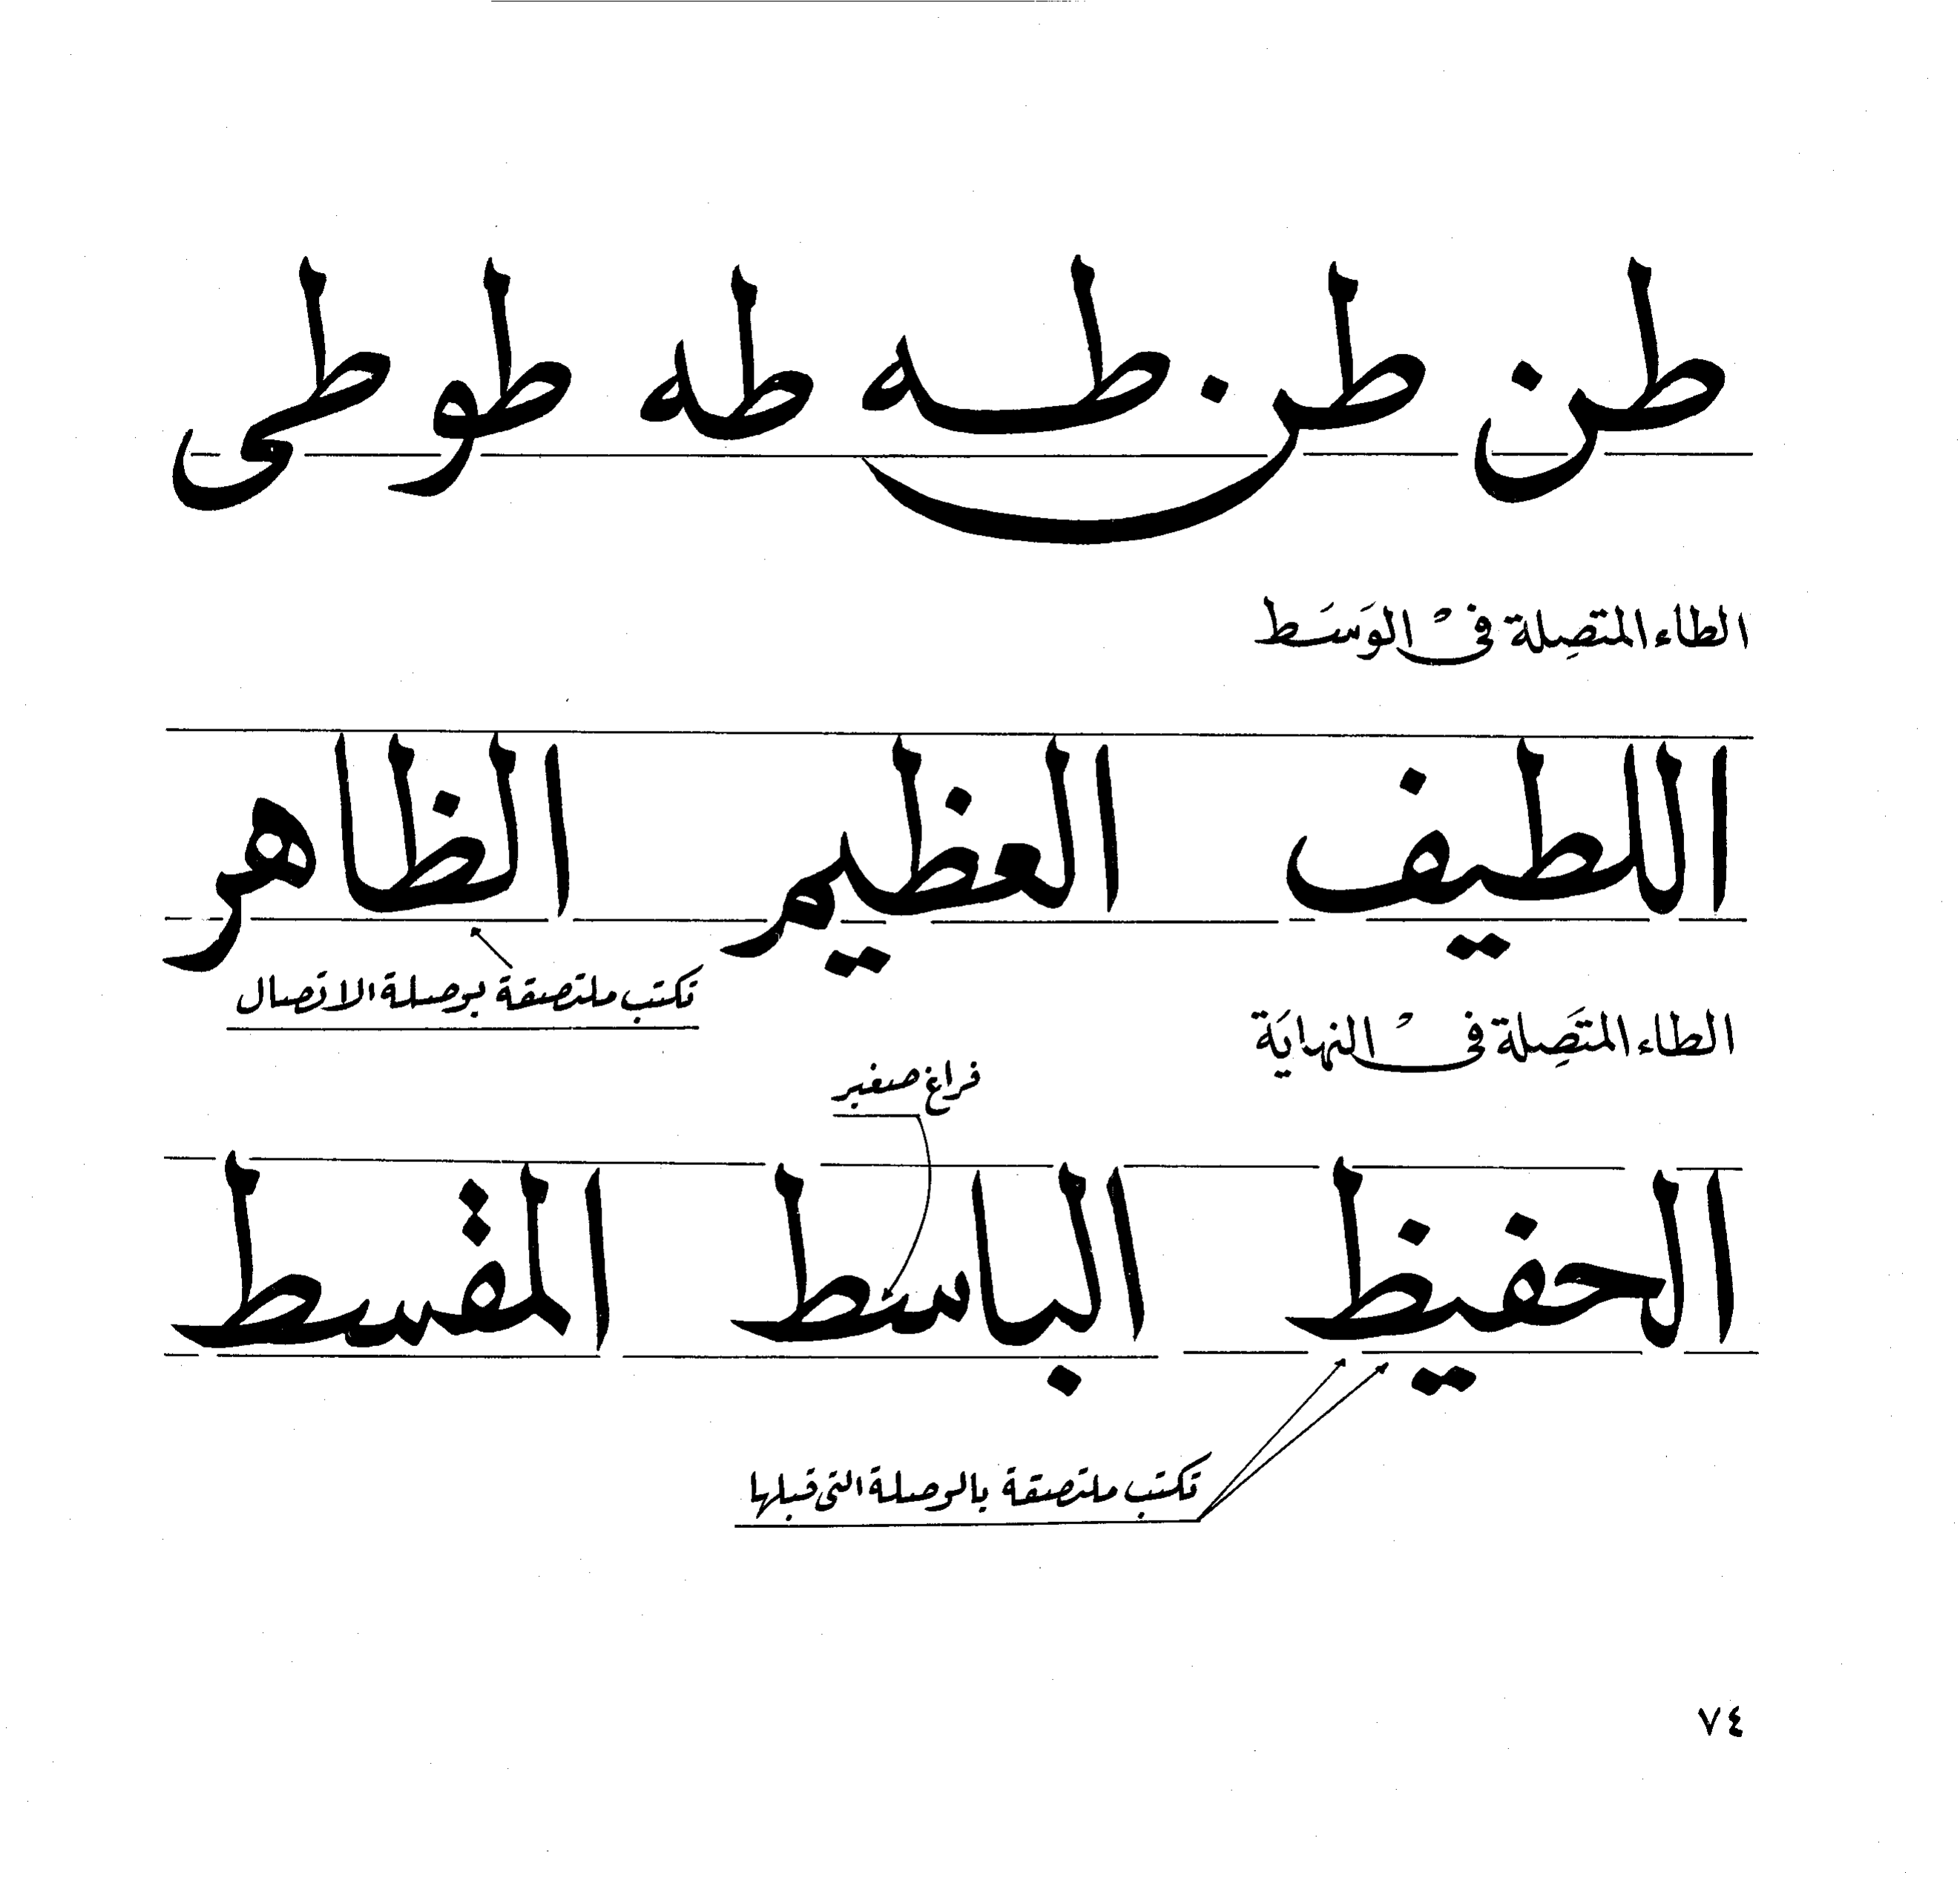 طن طن طه طه طو طى
الطاء المتصِلة فى الوَسَط
اللطيف العظيم الظاهر
تكتب ملتصقة بوصلة الاتصال
الطاء المتَصِلة فى النهايَة
فراغ صغير
الحفيظ الباسط المقسط
تكتب ملتصقة بالوصلة التى قبلها
٧٤